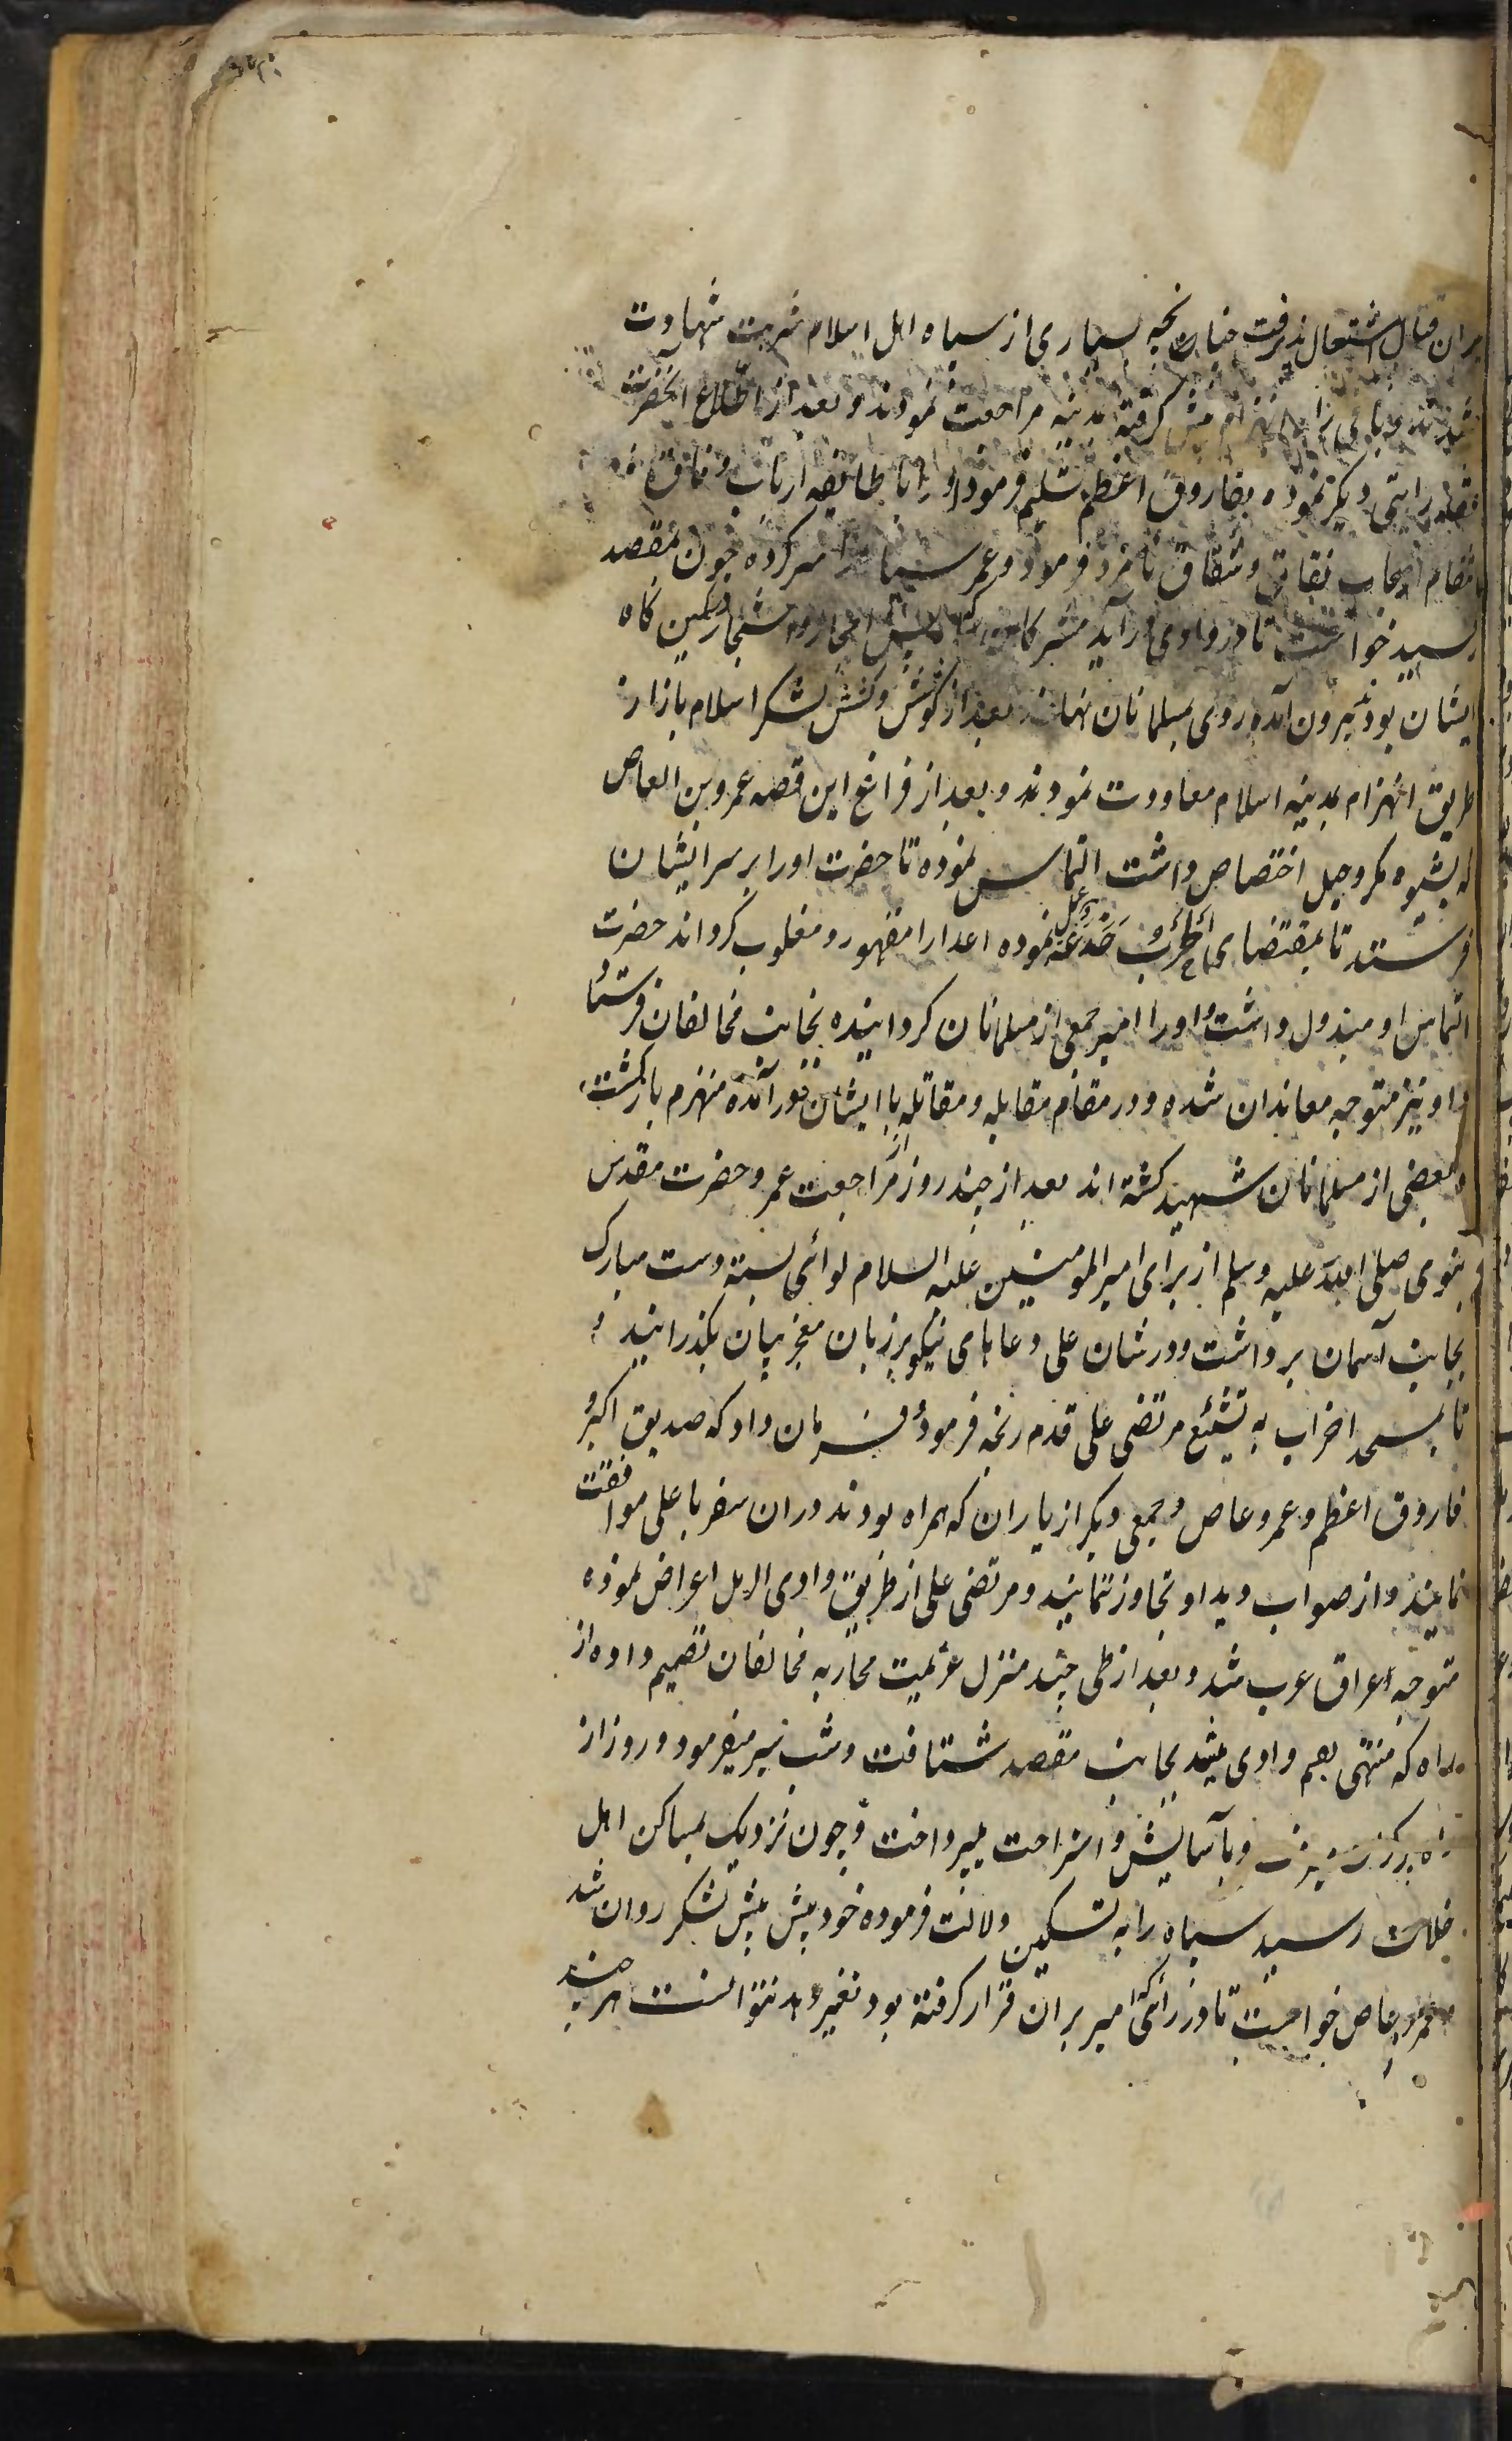 قتال اشتعال پذیرفت چنانچه بسیاری از سپاه اهل اسلام شربت شهادت
انهزام پیش کرفته بمدینه مراجعت نمودند و بعد از اطلاع آنحضرت
رایتی دیکر نموده بفاروق اعظم تسلیم فرمود او را با طایفه ارباب وفاق
انتقام اصحاب نفاق و شقاق نامزد فرمود و عمر سپاه را سر کرده چون بمقصد
رسید خواست تا در وادی درآید مشرکان که در پس احجار و اشجار در کمین کاه
ایشان بودند بیرون آمده روی بمسلمانان نهادند بعد از کوشش و کشش لشکر اسلام باز از
طریق انهزام بمدینه اسلام معاودت نمودند و بعد از فراغ این قصه عمرو بن العاص
که بشیوه مکر و حیل اختصاص داشت التماس نموده تا حضرت او را بر سر ایشان
فرستد تا بمقتضای الحرب خدعة عمل نموده اعدا را مقهور و مغلوب کرداند حضرت
التماس او مبذول داشت و او را امیر جمعی از مسلمانان کردانیده بجانب مخالفان فرستاد
و او نیز متوجه معاندان شده و در مقام مقابله و مقاتله با ایشان درآمده منهزم بازکشت
و بعضی از مسلمانان شهید کشته اند بعد از چند روز از مراجعت عمرو حضرت مقدس
نبوی صلی الله علیه وسلم از برای امیر المومنین علیه السلام لوائی بسته دست مبارک
بجانب آسمان برداشت و در شان علی دعاهای نیکو بر زبان معجز بیان بکذرانید و
تا بمسجد احزاب به تشییع مرتضی علی قدم رنجه فرمود و فرمان داد که صدیق اکبر و
فاروق اعظم و عمرو عاص و جمعی دیکر از یاران که همراه بودند در ان سفر با علی موافقت
نمایند و از صواب دید او تجاوز ننمایند و مرتضی علی از طریق وادی الرمل اعراض نموده
متوجه عراق عرب شد و بعد از طی چند منزل عزیمت محاربه مخالفان تصمیم داده از
راه که منتهی بفم وادی میشد بجانب مقصد شتافت و شب سیر میفرمود و روز از
و بآسایش و استراحت میپرداخت و چون نزدیک بمساکن اهل
ضلالت رسید سپاه را به تسکین دلالت فرموده خود پیش پیش لشکر روان شد
عمرو عاص خواست تا در رائی که امیر بر ان قرار کرفته بود تغییر دهد نتوانست هر چند